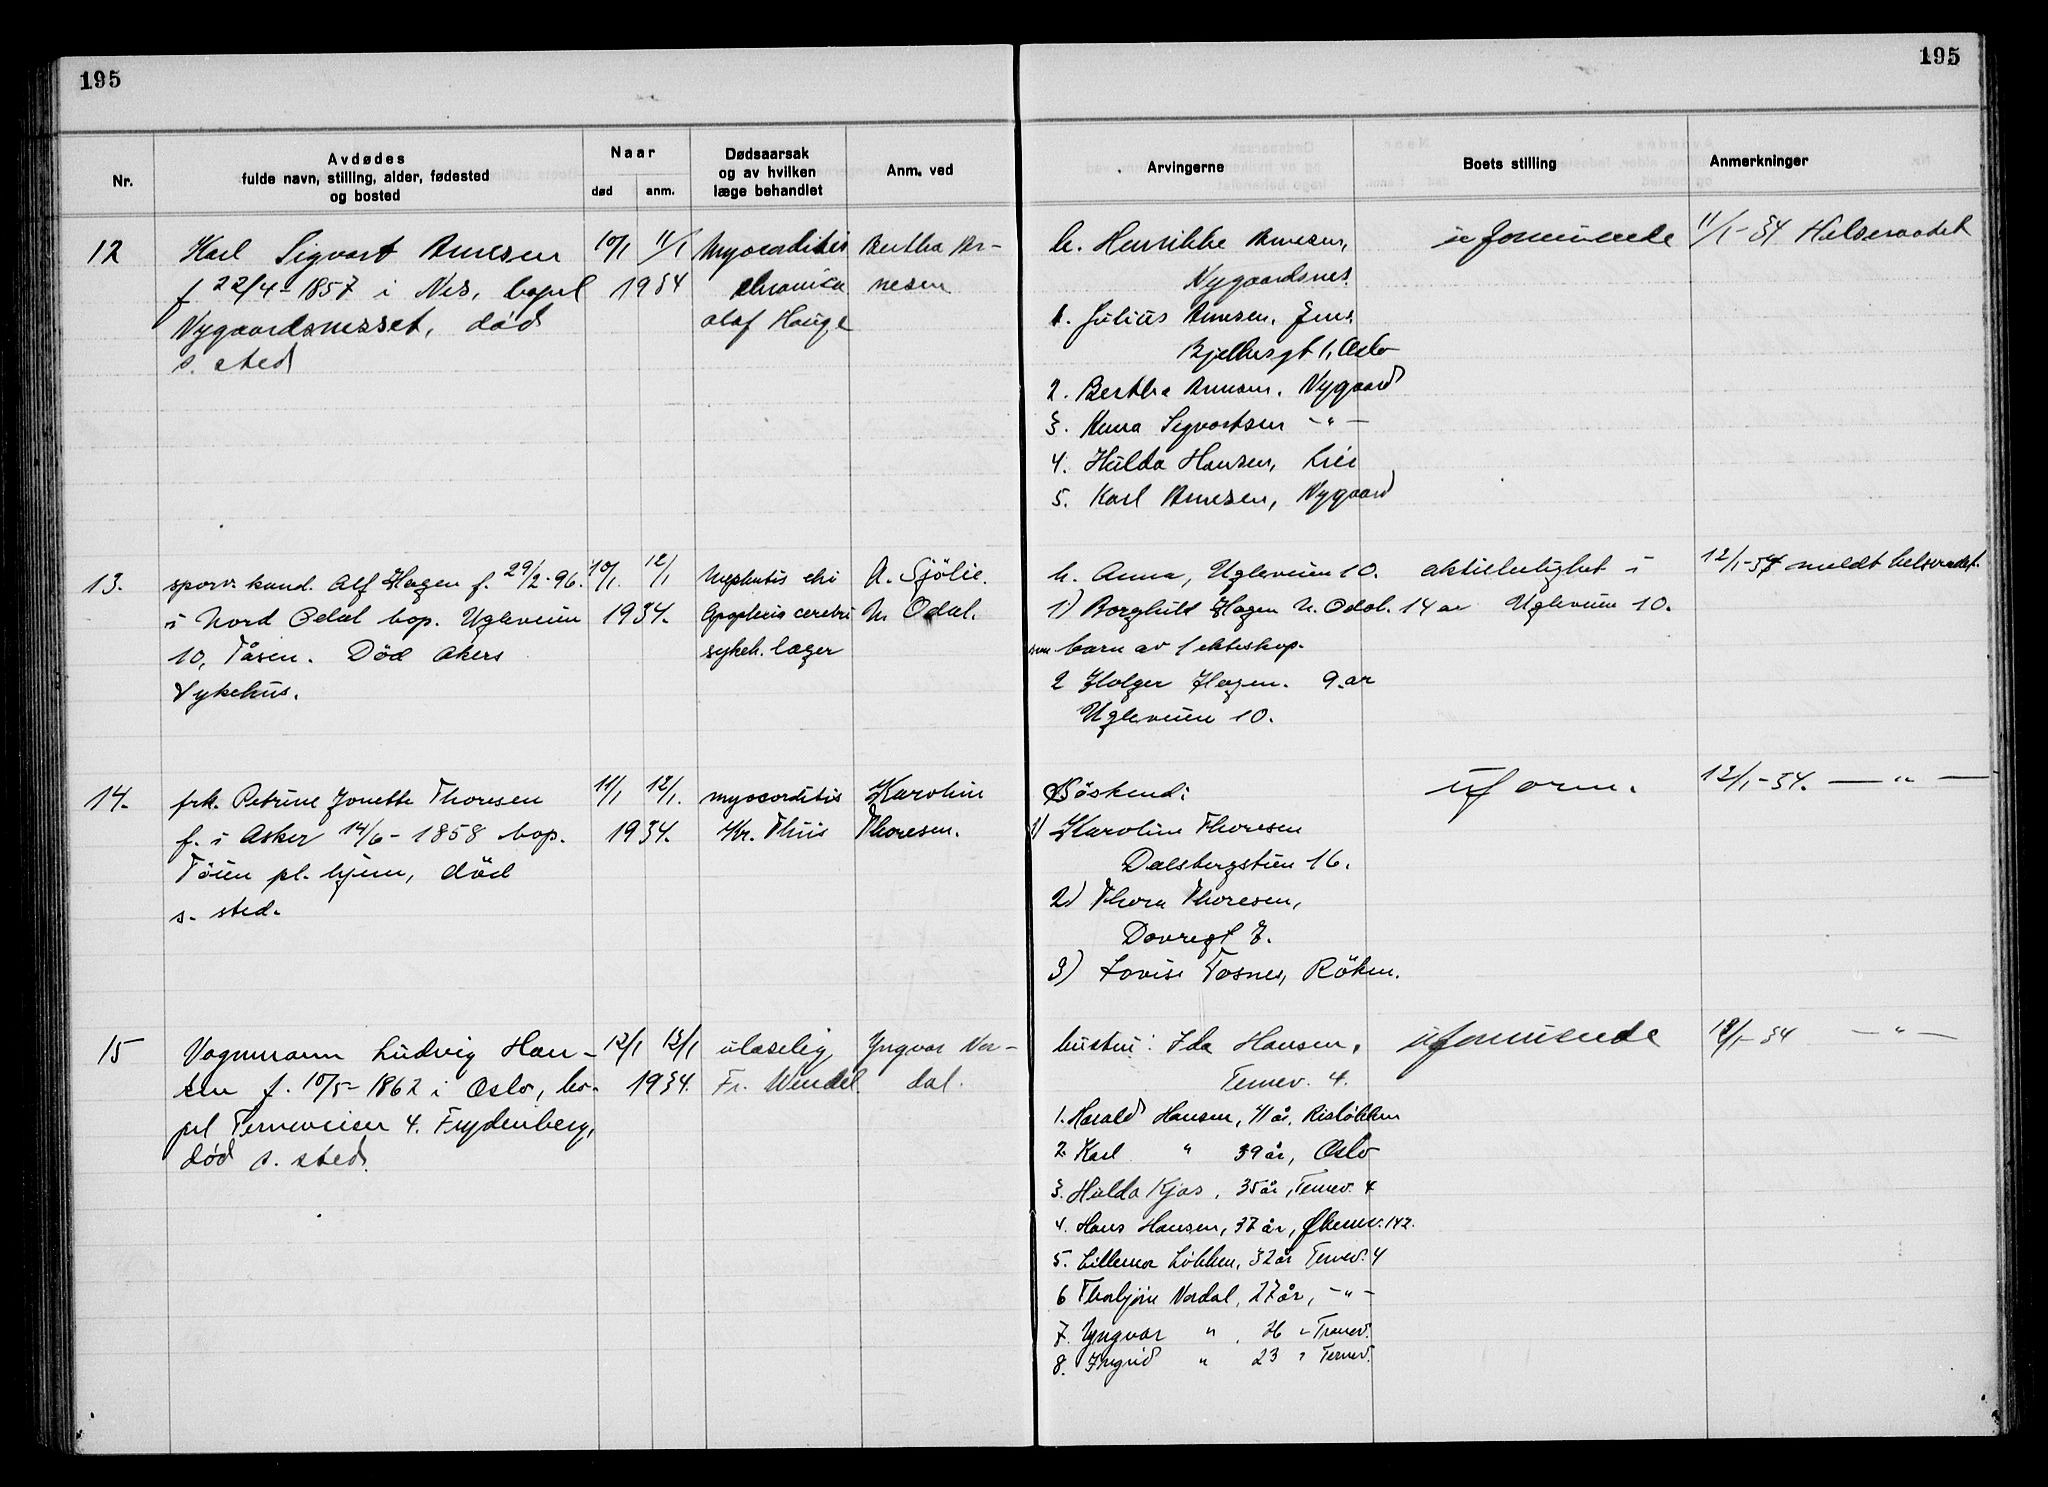 195
195
Nr.
Avdødes
fulde navn, stilling, alder, fødested
og bosted
Naar
død
anm.
Dødsaarsak
og av hvilken
læge behandlet
Anm. ved
Arvingerne
Boets stilling
Anmerkninger
12
Karl Sigvart Arnesen
f 22/4-1857 i Nes, bopel
Nygaardsnesset, død
s. sted
10/1 11/1
1934
Myocarditis
chronica
Olaf Hauge
Bertha Ar-
nesen
h. Henrikke Arnesen,
Nygaardsnes.
1. Julius Arnesen, Jens
Bjelkesgt 1, Oslo
2. Bertha Arnesen, Nygaard
3. Anna Sigvartsen -"-
4. Hulda Hansen, Lier
5. Karl Arnesen, Nygaard
uformuende
11/1-34 Helseraadet
13.
sporv. kond. Alf Hagen f. 29/2-96.
i Nord Odal bop. Ugleveien
10, Tåsen. Död Akers
Sykehus.
10/1. 12/1
1934.
Nephritis chr
Apoplexia cerebri
sykeh. læger
A. Sjölie.
N. Odal.
h. Anna, Ugleveien 10.
1) Borghild Hagen N. Odal. 14 ar
barn av 1 ekteskap.
2 Holger Hagen. 9. ar
Ugleveien 10.
aktieleilighet i
Ugleveien 10.
12/1-34 meldt helseradet.
14.
frk. Petrine Jonette Thoresen
f. i Asker 14/6-1858 bop.
Töien pl. hjem, död
s. sted.
11/1 12/1.
1934.
myocarditis
Kr. Thiis
Karoline
Thoresen.
Söskend:
1) Karoline Thoresen
Dalsbergstien 16.
2) Thora Thoresen,
Dovregt 7.
3) Lovise Tosnes, Röken.
uform.
12/1-34. -"-
15
Vognmann Ludvig Han-
sen f. 10/5-1862 i Oslo, bo-
pel Terneveien 4. Frydenberg,
død s. sted.
12/1 13/1
1934.
Fr. Wendel.
Yngvar Nor-
dal.
hustru: Ida Hansen,
Ternev. 4.
1. Harald Hansen, 41 år, Risløkken
2. Karl " 39 år, Oslo
3. Hulda Kjos, 35 år, Ternev. 4
4. Hans Hansen, 37 år, Økernv. 142.
5. Lillemor Løkken, 32 år Ternev. 4
6 Thorbjørn Nordal, 27 år, -"-
7. Yngvar " , 26 " Ternev.
8. Ingrid " 23 " Ternev.
uformuende
13/1-34 -"-